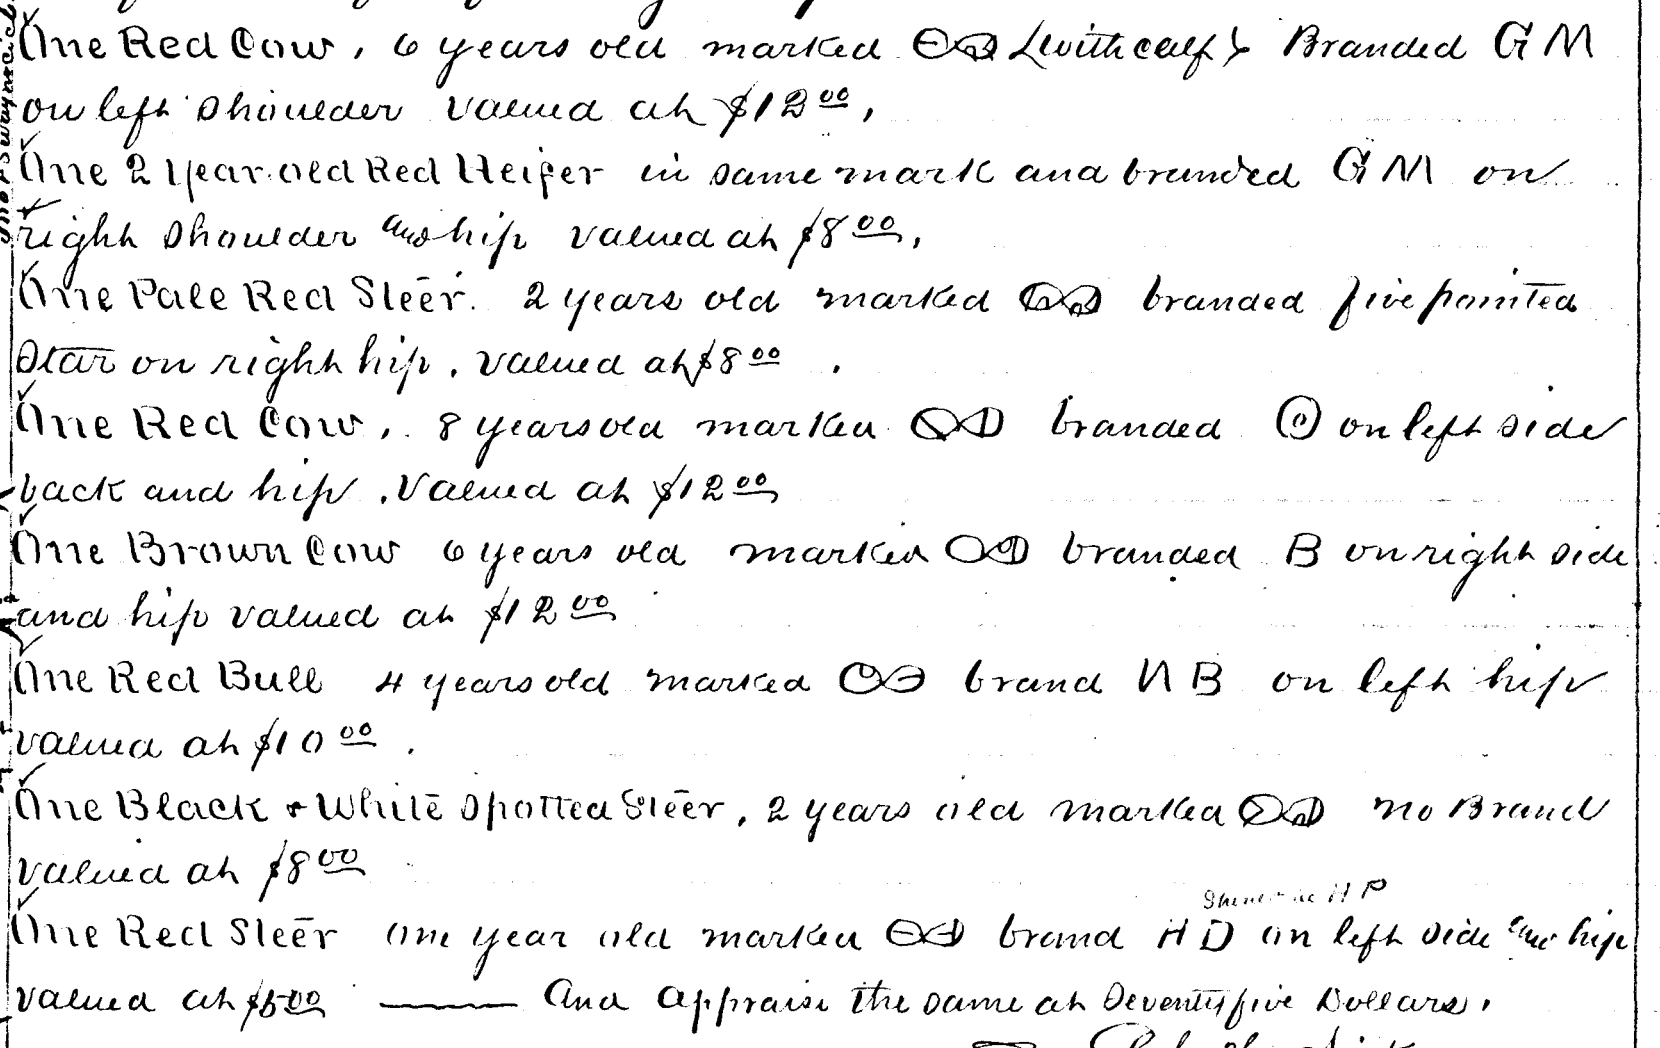 One Red Cow, 6 years old marked (with calf) Branded G M
on left shoulder valued at $12 00,
One 2 year old Red Heifer in same mark and branded G M on
right shoulder and hip valued at $8 00,
One Pale Red Steer. 2 years old marked branded five pointed
Star on right hip, valued at $8 00.
One Red Cow, 8 years old marked branded on left side
back and hip, Valued at $12 00
One Brown Cow 6 years old marked branded B on right side
and hip valued at $12 00
One Red Bull 4 years old marked brand N B on left hip
valued at $10 00.
One Black & White Spotted Steer, 2 years old marked no Brand
valued at $8 00
H P
One Red Steer one year old marked brand H D on left side and hip
valued at $5 00 —— and appraise the same at Seventy five Dollars.